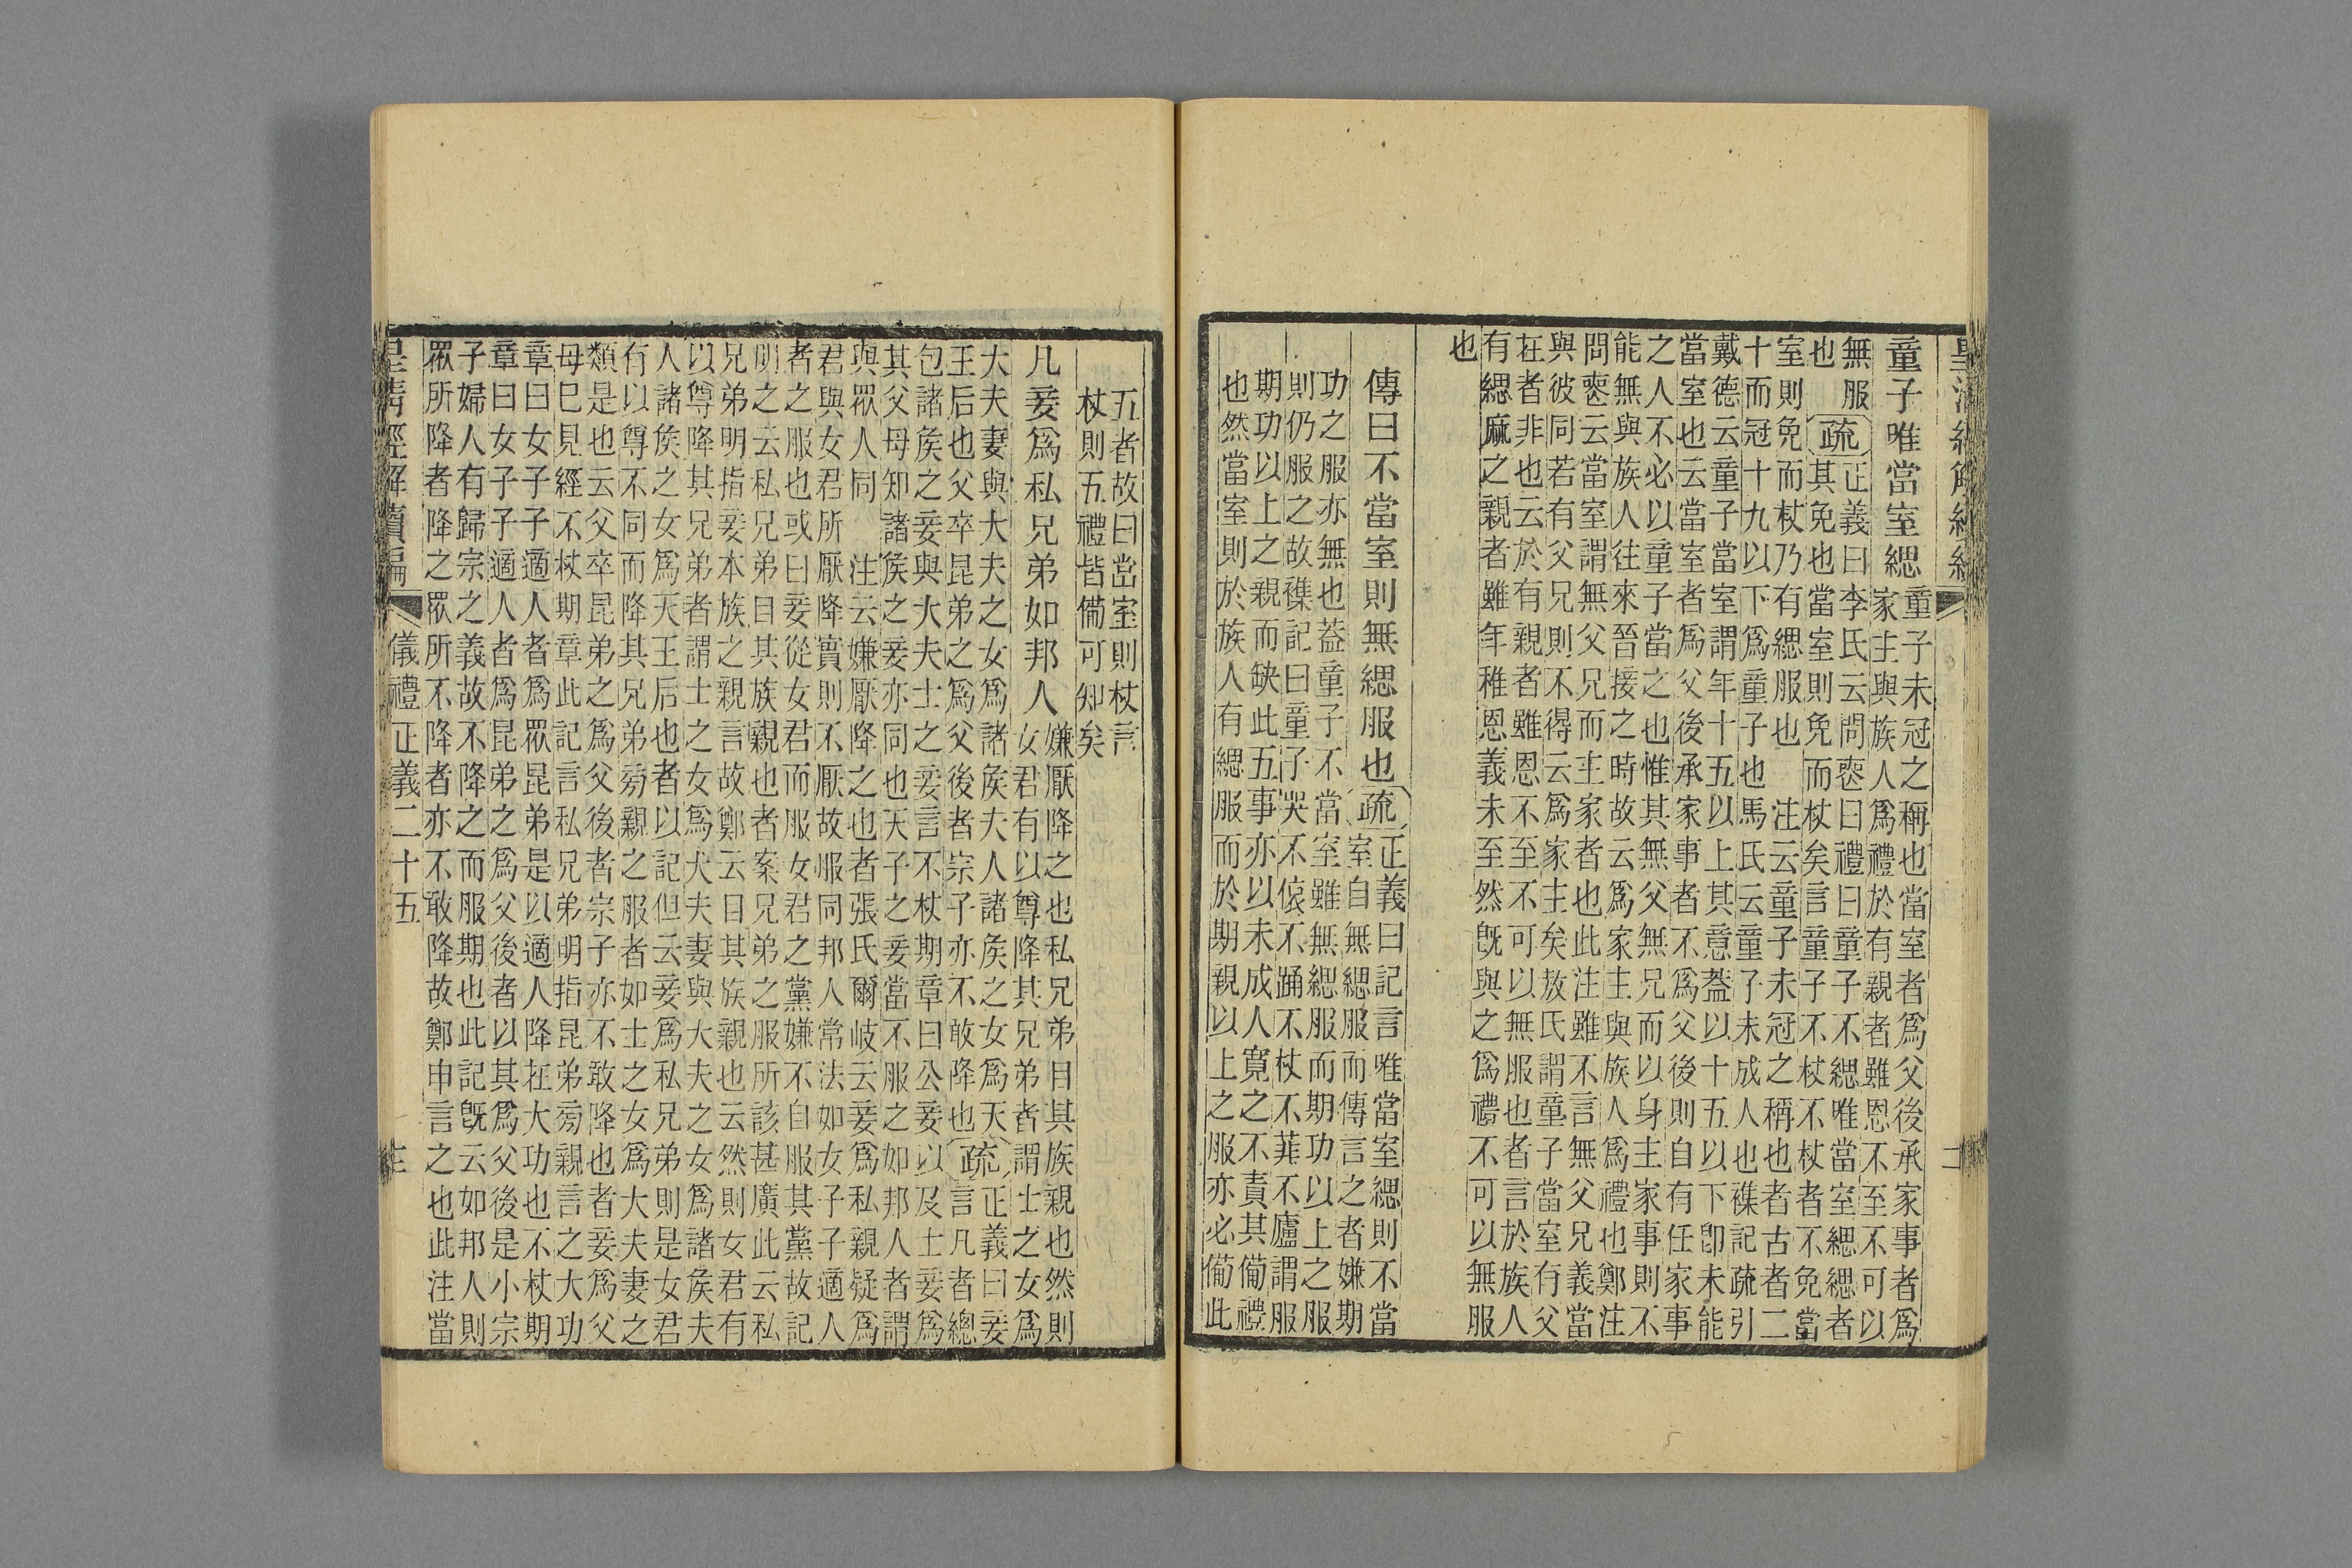 皇清經解續編 二
童子唯當室緦
童子未冠之稱也當室者爲父後承家事者爲
家主與族人爲禮於有親者雖恩不至不可以
無服
也
疏
正義曰李氏云問喪曰禮曰童子不緦唯當室緦緦者
其免也當室則免而杖矣言童子不杖不杖者不免當
室則免而杖乃有緦服也　注云童子未冠之稱也者古者二
十而冠十九以下爲童子也馬氏云童子未成人也襍記疏引
戴德云童子當室謂年十五以上其意葢以十五以下卽未能
當室也云當室者爲父後承家事者不爲父後則自有任家事
之人不必以童子當之也惟其無父無兄而以身主家事則不
能無與族人往來晉接之時故云爲家主與族人爲禮也鄭注
問喪云當室謂無父兄而主家者也此注雖不言無父兄義當
與彼同若有父兄則不得云爲家主矣敖氏謂童子當室有父
在者非也云於有親者雖恩不至不可以無服也者言於族人
有緦麻之親者雖年稚恩義未至然旣與之爲禮不可以無服
也
傳曰不當室則無緦服也
疏
正義曰記言唯當室緦則不當
室自無緦服而傳言之者嫌期
功之服亦無也葢童子不當室雖無緦服而期功以上之服
則仍服之故襍記曰童子哭不偯不踊不杖不菲不廬謂服
期功以上之親而缺此五事亦以未成人寬之不責其備禮
也然當室則於族人有緦服而於期親以上之服亦必備此
五者故曰當室則杖言
杖則五禮皆備可知矣
凡妾爲私兄弟如邦人
嫌厭降之也私兄弟目其族親也然則
女君有以尊降其兄弟者謂士之女爲
大夫妻與大夫之女爲諸矦夫人諸矦之女爲天
王后也父卒昆弟之爲父後者宗子亦不敢降也
疏
正義曰妾
言凡者總
包諸矦之妾與大夫士之妾言不杖期章曰公妾以及士妾爲
其父母知諸矦之妾亦同也天子之妾當不服之如邦人者謂
與眾人同　注云嫌厭降之也者張氏爾岐云妾爲私親疑爲
君與女君所厭降實則不厭故服同邦人常法如女子子適人
者之服也或曰妾從女君而服女君之黨嫌不自服其黨故記
明之云私兄弟目其族親也者案兄弟之服所該甚廣此云私
兄弟明指妾本族之親言故鄭云目其族親也云然則女君有
以尊降其兄弟者謂士之女爲大夫妻與大夫之女爲諸矦夫
人諸矦之女爲天王后也者以記但云妾爲私兄弟則是女君
有以尊不同而降其兄弟旁親之服者如士之女爲大夫妻之
類是也云父卒昆弟之爲父後者宗子亦不敢降也者妾爲父
母已見經不杖期章此記言私兄弟明指昆弟旁親言之大功
章曰女子子適人者爲眾昆弟是以適人降在大功也不杖期
章曰女子子適人者爲昆弟之爲父後者以其爲父後是小宗
子婦人有歸宗之義故不降之而服期也此記旣云如邦人則
眾所降者降之眾所不降者亦不敢降故鄭申言之也此注當
皇清經解續編 儀禮正義二十五 三